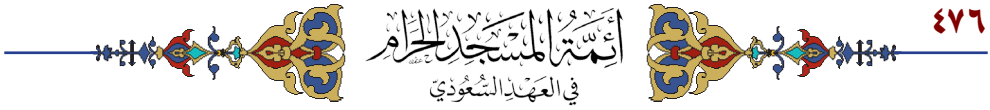 ٤٧٦
أَئِمَّةُ المَسْجِدِ الحَرَامِ
في العَهْدِ السُّعُودِيّ